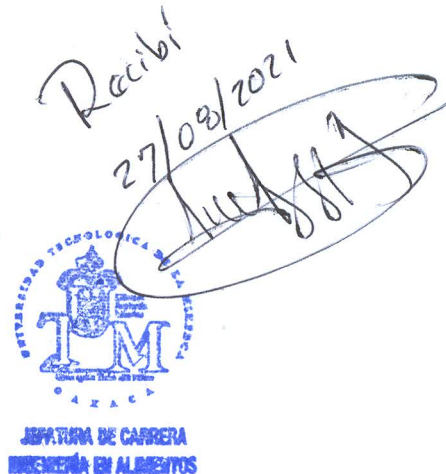 Recibí
27/08/2021
UNIVERSIDAD TECNOLOGICA DE LA MIXTECA
UTM
OAXACA
JEFATURA DE CARRERA
INGENIERÍA EN ALIMENTOS